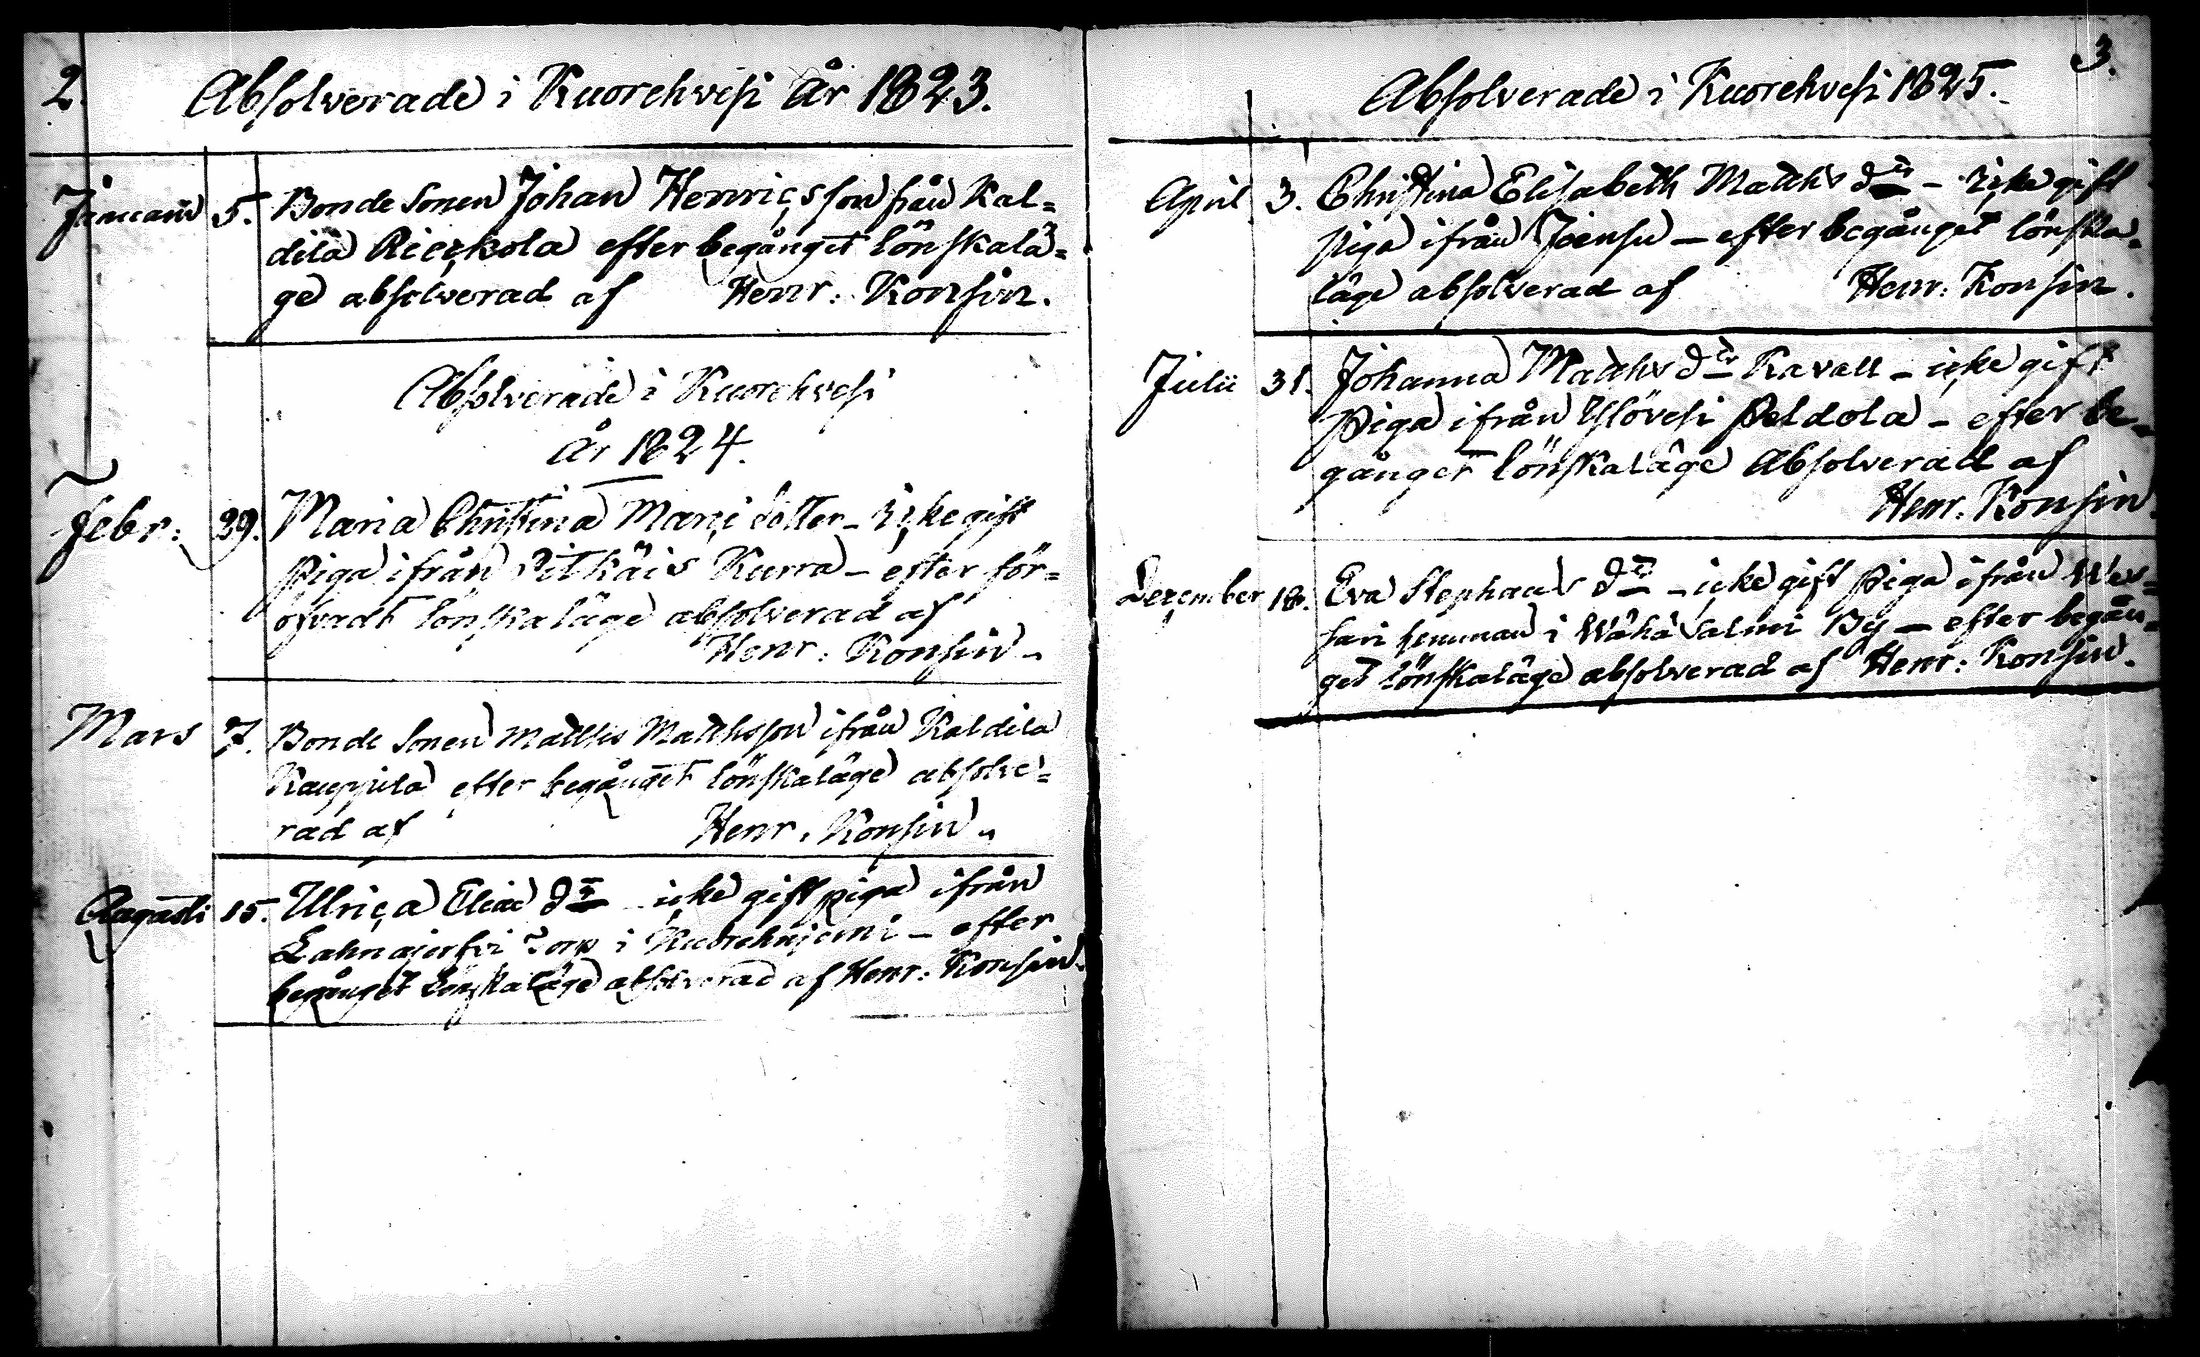 2.
Absolverade i Kuorehvesi År 1823.
Januarii 5. Bonde Sonen Johan Henricsson från Kal=
dila Rieckola efter begånget lönskalä=
ge absolverad af Henr: Konsin.
Absolverade i Kuorehvesi
År 1824.
Febr: 29. Maria Christina Mari dotter - icke gift
Piga ifrån Pitkäis Kurra - efter för=
öfvadt lönskaläge absolverad af
Henr: Konsin.
Mars 7. Bonde Sonen Matths Matthsson ifrån Kaldila
Kauppila efter begånget lönskaläge absolve=
rad af Henr. Konsin.
Augusti 15. Ulrica Elias dr icke gift piga ifrån
Lahnajerfvi Torp i Kuorehniemi - efter
begånget Lönskaläge absolverad af Henr: Konsin.
3.
Absolverade i Kuorehvesi 1825.
April 3. Christina Elisabeth Matths dr - icke gift
piga ifrån Joensu - efter begånget lönska=
läge absolverad af Henr: Konsin.
Julii 31. Johanna Matths dr Kavall - icke gift
Piga ifrån Ylövesi Peldola - efter be=
gånget lönskaläge Absolverad af
Henr. Konsin
December 18. Eva Stephans dr - icke gift Piga ifrån
i Wähä Salmi By - efter begån=
get lönskaläge absolverad af Henr: Konsin.